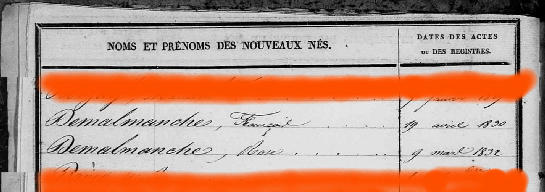 NOMS ET PRÉNOMS DES NOUVEAUX NÉS.
DATES DES ACTES
OU DES REGISTRES.
Demalmanche, François 19 avril 1830
Demalmanche, Rose 9 mars 1832